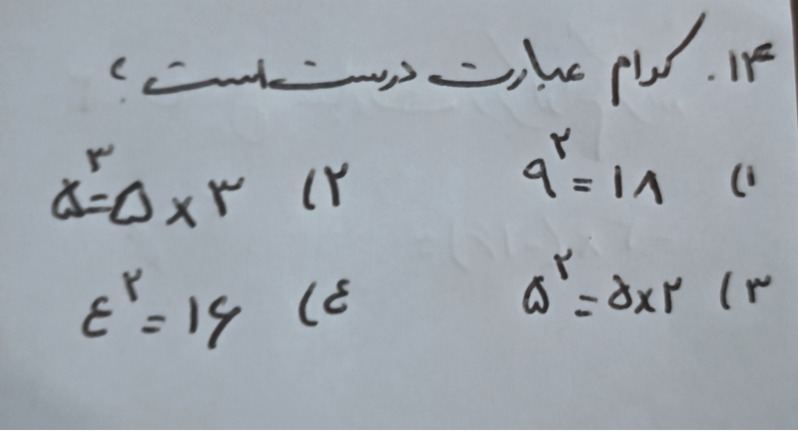 ۱۴. کدام عبارت درست است؟
۱) ۹² = ۱۸
۲) ۵³ = ۵ × ۳
۳) ۵² = ۵ × ۲
٤) ٤² = ۱۶